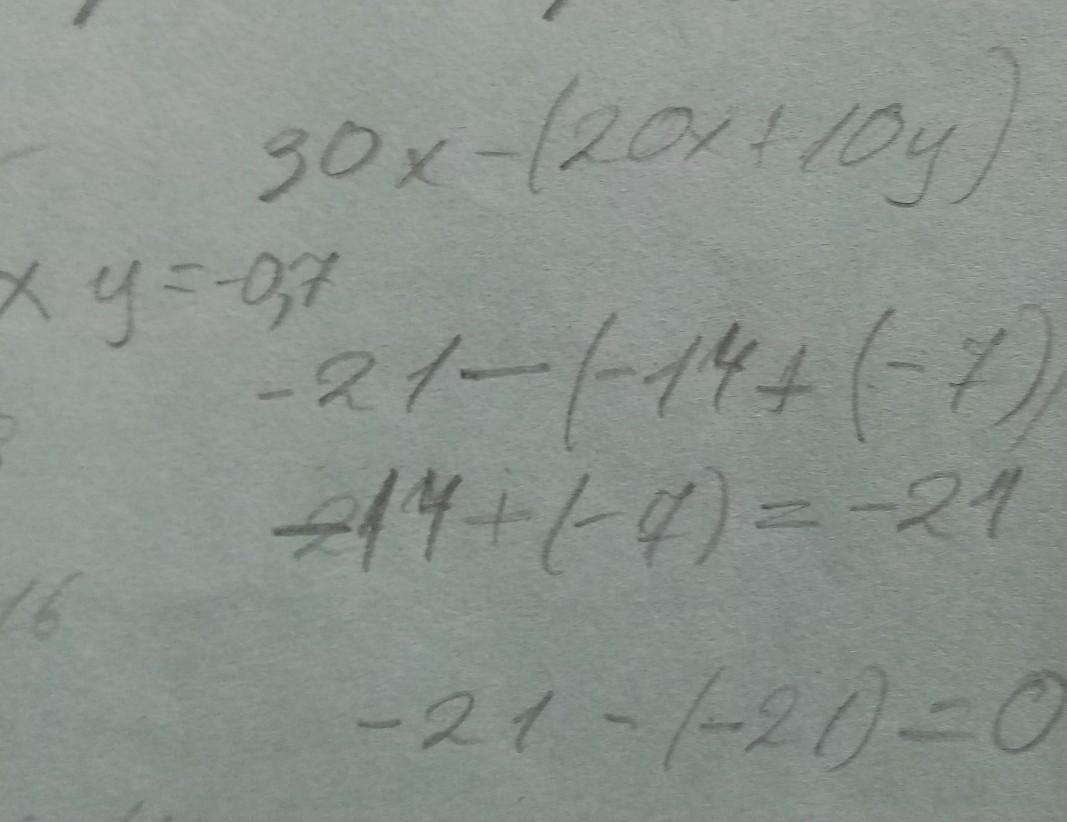 30x-(20x+10y)
x y=-0,7
-21-(-14+(-7)
-14+(-7)=-21
16
-21-(-21)=0